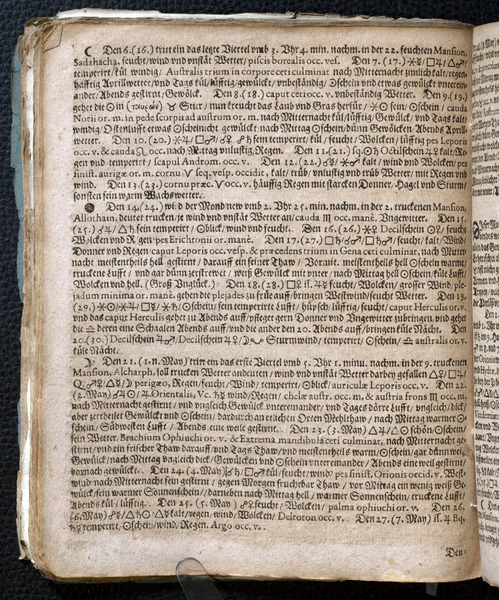 ☾ Den 6. (16.) tritt ein das letzte Viertel vmb 3. Vhr 4. min. nachm. in der 22. feuchten Mansion,
Sadahacha, feucht/wind vnd vnstät Wetter/ piscis borealis occ. vesp. Den 7. (17.)
temperirt/ kül windig/ Australis trium in corpore ceti culminat nach Mitternacht zimlich kalt/regen-
hafftig Aprillwetter/vnd Tags kül/lüfftig/gewülckt/ vnbeständig/ ⊙schein vnd etwas gewülck vnterein-
ander/Abends gestirnt/ Gewölck. Den 8. (18.) caput ceti occ. v. vnbeständig Wetter. Den 9. (19.)
gehet die ⊙ in ♉ Stier/ nun kreucht das Laub vnd Gras herfür/ ⚹⊙ fein/⊙schein/ cauda
Norii or. m. in pede scorpii ad austrum or. m. nach Mitternacht kül/lüfftig/ Gewülck/ vnd Tags kalt/
windig/ Ostenlufft etwas ⊙schein/ gewülckt/ nach Mittag ⊙schein/ dünn Gewölcken Abends Aprill-
wetter. Den 10. (20.) fein temperirt/ kül/ feucht/ Wolcken/ lüfftig pes Leporis
occ. v. & cauda ♌ occ. nach Mittag vnlustig Regen. Den 11. (21.) Decilschein kalt/Re-
gen vnd temperirt/ scapul Androm. occ. v. Den 12. (22.) kalt/ wind vnd Wolcken/ pes
finist. aurigæ or. m. cornu ♈ seq. vesp. occidit, kalt/ trüb/ vnlustig vnd trüb Wetter/ mit Regen vnd
wind. Den 13. (23.) cornu præc. ♈ occ. v. häuffig Regen mit starcken Donner/ Hagel vnd Sturm/
sonsten fein warm Wachswetter.
● Den 14. (24.) wird der Mond new vmb 2. Vhr 25. min. nachm. in der 2. truckenen Mansion,
Allothaim, deutet trucken/ je wind vnd vnstät Wetter an/ cauda ♏ occ. manè. Vngewitter. Den 15.
(25.) fein temperirt/ ⊙blick/ wind vnd feucht. Den 16. (26.) Decilschein feucht/
Wolcken vnd Regen/ pes Erichtonii or. manè. Den 17. (27.) feucht/ kalt/ Wind/
Donner vnd Regen/ caput Leporis occ. vesp. & præcedens trium in Gena ceti culminat, nach Mitter-
nacht meistentheils hell gestirnt/ darauff ein feiner Thaw/ Vormit. meistentheils hell ⊙schein warme
truckene Lufft/ vnd gar dünn zerstrewet/ weiß Gewülck mit vnter/ nach Mittag hell ⊙schein/ küle Lufft/
Wolcken vnd hell. (Groß Vnglück.) Den 18. (28.) feucht/ Wolcken/ grosser Wind/ ple-
jadum minima or. manè. gehen die plejades zu frühe auff/ bringen Westwind/ feucht Wetter. Den 19.
(29.) ⊙schein/ fein temperirt Lufft/ hüpsch/ lüfftig/ feucht/ caput Herculis or. v.
vnd das caput Herculis gehet zu Abends auff/ pfleget gern Donner vnd Vngewitter zubringen/ vnd gehet
die ♎ deren eine Schaalen Abends auff/ vnd die ander den 20. Abends auff/ bringen küle Nächt. Den
20. (30.) Decilschein Decilschein Sturmwind/ temperirt/ ⊙schein/ ♎ australis or. v.
küle Nächt.
☽ Den 21. (1. m. May) tritt ein das erste Viertel vmb 5. Vhr 1. minu. nachm. in der 9. truckenen
Mansion, Alcharph, soll trucken Wetter andeuten/ wind vnd vnstät Wetter darbey gefallen
perigæo, Regen/ feucht/ Wind/ temperirt/ ⊙blick/ auriculæ Leporis occ. v. Den 22.
(2. May) Orientalis, Vc. wind/Regen/ chelæ austr. occ. m. & austria frons ♏ occ. m.
nach Mitternacht gestirnt/ vnd vngleich Gewülck vntereinander/ vnd Tages dörre Lufft/ vngleich/ dick/
aber zertheilet Gewülck vnd ⊙schein/ dardurch an etlichen Orten Mehlthaw/ nach Mittag warmer ⊙-
schein/ Südwesten Lufft/ Abends eine weile gestirnt. Den 23. (3. May) schön ⊙schein/
fein Wetter. Brachium Ophiuchi or. v. & Extrema mandibulâ ceti culminat, nach Mitternacht ge-
stirnt/ vnd ein frischer Thaw darauff/ vnd Tags Thaw/ vnd meistentheils warm ⊙schein/ gar dünn weiß
Gewülck/ nach Mittag vngleich dick/ Gewülcken vnd ⊙schein vntereinander/ Abends eine weil gestirnt/
vornach gewülckt. Den 24. (4. May) kül/ feucht/ wind/ pes sinist. Orionis occid. v. West-
wind/ nach Mitternacht fein gestirnt/ gegen Morgen fruchtbar Thaw/ vor Mittag ein wenig weiß Ge-
wülck/ fein warmer Sonnenschein/ darneben nach Mittag hell/ warmer Sonnenschein/ truckene Lufft/
Abends kül/ lüfftig. Den 25. (5. May) feucht/ Wolcken/ palma ophiuchi or. v. Den 26.
(6. May) kalt/regen/ wind/ Wolcken/ Deltoton occ. v. Den 27. (7. May) Bq.
temperirt/ ⊙schein/ wind/ Regen. Argo occ. v.
Den